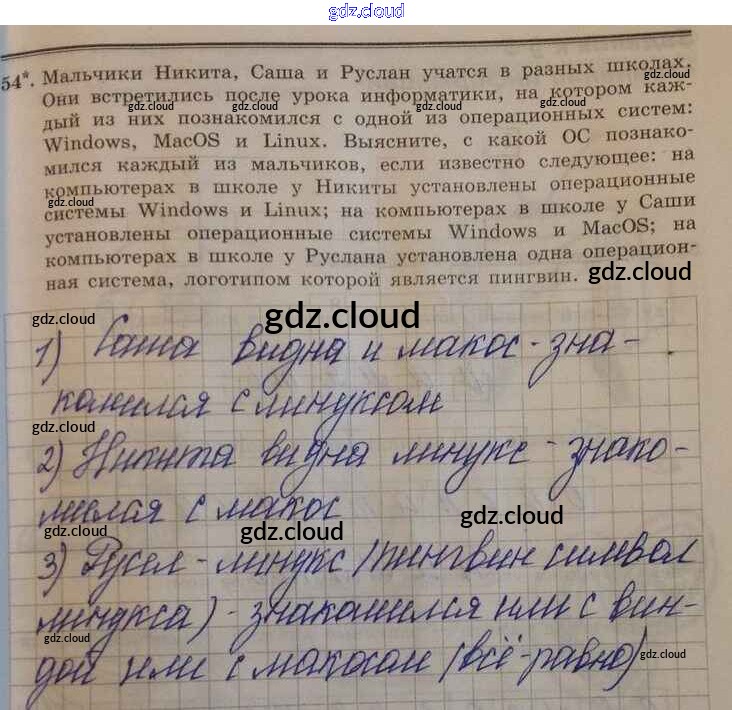 gdz.cloud
gdz.cloud
54*. Мальчики Никита, Саша и Руслан учатся в разных школах.
gdz.cloud
Они встретились после урока информатики, на котором каж-
gdz.cloud gdz.cloud gdz.cloud
дый из них познакомился с одной из операционных систем:
Windows, MacOS и Linux. Выясните, с какой ОС познако-
мился каждый из мальчиков, если известно следующее: на
компьютерах в школе у Никиты установлены операционные
gdz.cloud
системы Windows и Linux; на компьютерах в школе у Саши
установлены операционные системы Windows и MacOS; на
компьютерах в школе у Руслана установлена одна операцион-
ная система, логотипом которой является пингвин.
gdz.cloud
gdz.cloud gdz.cloud gdz.cloud
1) Саша видна и макос - зна-
gdz.cloud
комился с линуксом
gdz.cloud
2) Никита видна линукс - знако-
мился с макос
gdz.cloud gdz.cloud gdz.cloud
3) Русел - линукс (пингвин символ
линукса) - знакомился или с вин-
gdz.cloud gdz.cloud
дой или с макосом (всё-равно)
gdz.cloud